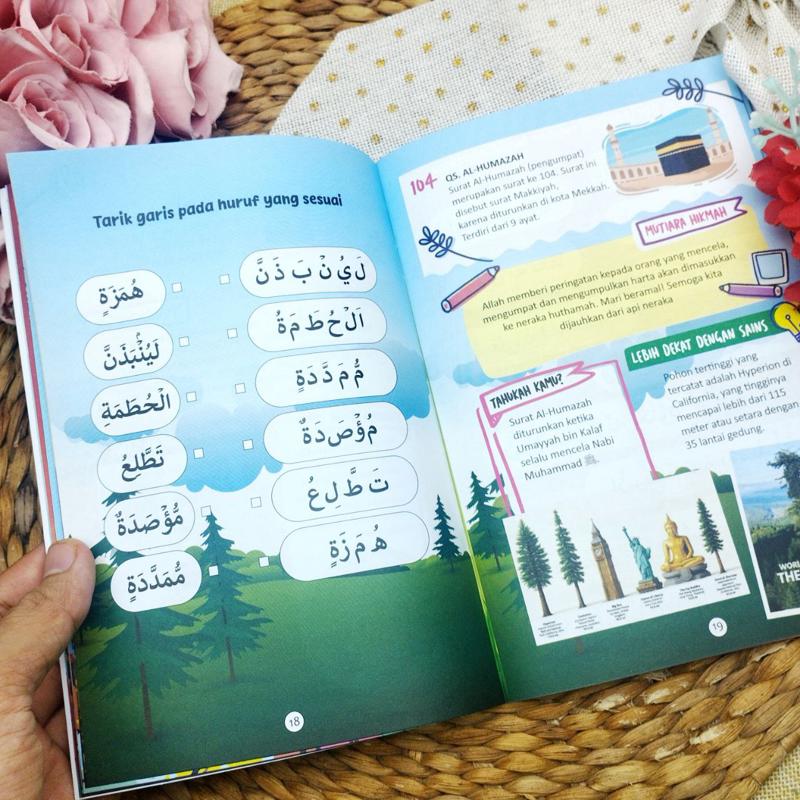 Tarik garis pada huruf yang sesuai
هُمَزَةٍ
لَيُنْۢبَذَنَّ
الْحُطَمَةِ
تَطَّلِعُ
مُّؤْصَدَةٌ
مُّمَدَّدَةٍ
لَ يُ نْ بَ ذَ نَّ
اَلْ حُ طَ مَ ةُ
مُّ مَ دَّ دَ ةٍ
مُ ؤْ صَ دَ ةٌ
تَ طَّ لِ عُ
هُ مَ زَ ةٍ
18
104
QS. AL-HUMAZAH
Surat Al-Humazah (pengumpat)
merupakan surat ke 104. Surat ini
disebut surat Makkiyah,
karena diturunkan di kota Mekkah.
Terdiri dari 9 ayat.
MUTIARA HIKMAH
Allah memberi peringatan kepada orang yang mencela,
mengumpat dan mengumpulkan harta akan dimasukkan
ke neraka huthamah. Mari beramal! Semoga kita
dijauhkan dari api neraka
TAHUKAH KAMU?
Surat Al-Humazah
diturunkan ketika
Umayyah bin Kalaf
selalu mencela Nabi
Muhammad ﷺ
LEBIH DEKAT DENGAN SAINS
Pohon tertinggi yang
tercatat adalah Hyperion di
California, yang tingginya
mencapai lebih dari 115
meter atau setara dengan
35 lantai gedung.
19